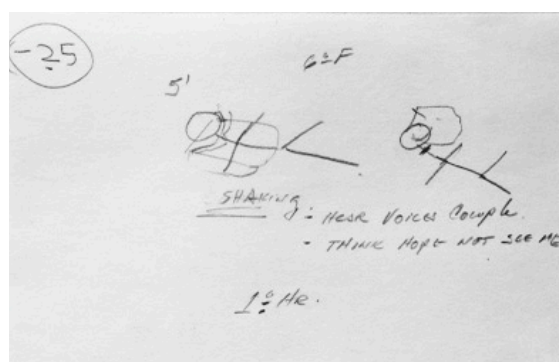 -25
6º F
5'
SHAKING - HEAR VOICES COUPLE.
- THINK HOPE NOT SEE ME
1º HR.